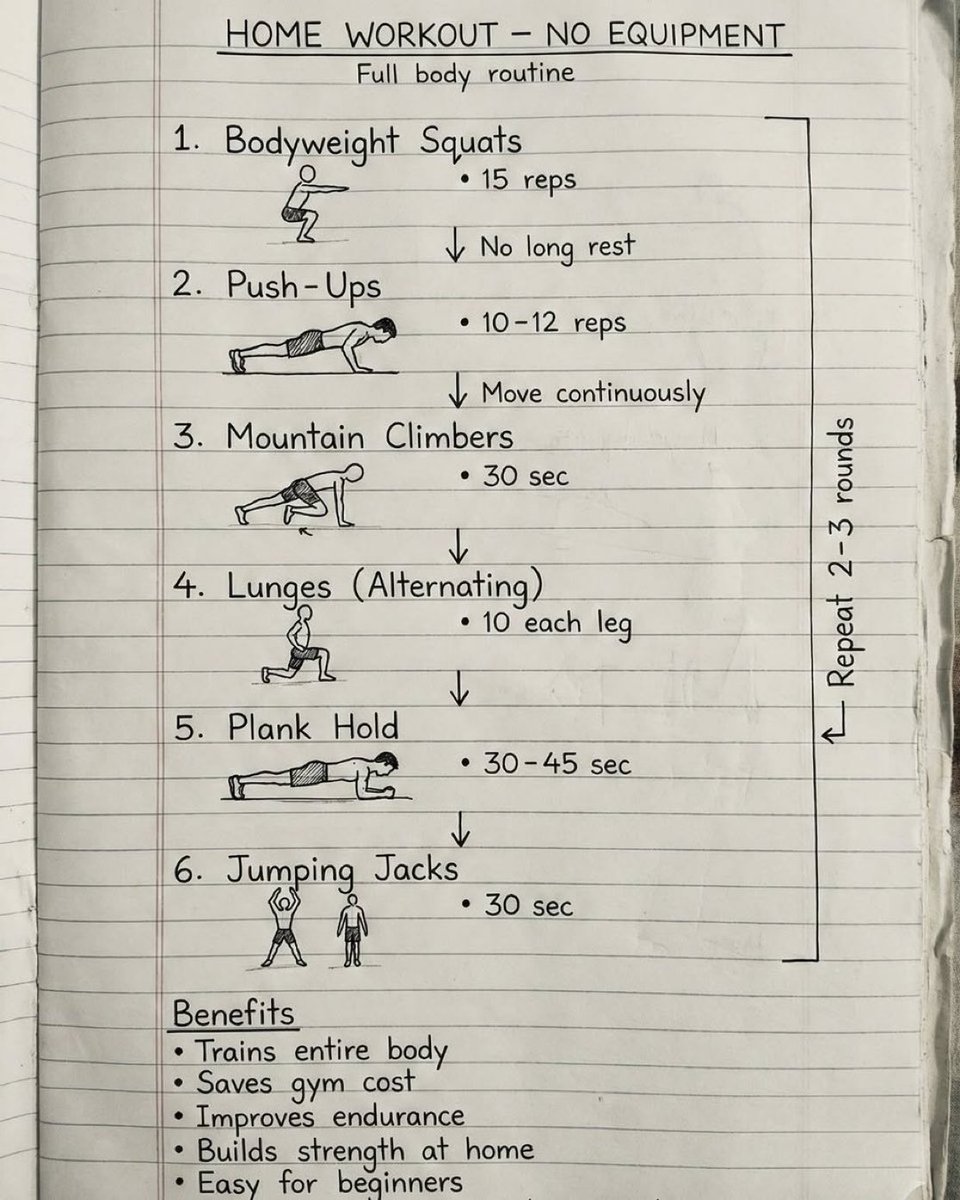 HOME WORKOUT – NO EQUIPMENT
Full body routine
1. Bodyweight Squats
• 15 reps
↓ No long rest
2. Push-Ups
• 10-12 reps
↓ Move continuously
3. Mountain Climbers
• 30 sec
↓
4. Lunges (Alternating)
• 10 each leg
↓
5. Plank Hold
• 30-45 sec
↓
6. Jumping Jacks
• 30 sec
Repeat 2-3 rounds
Benefits
• Trains entire body
• Saves gym cost
• Improves endurance
• Builds strength at home
• Easy for beginners